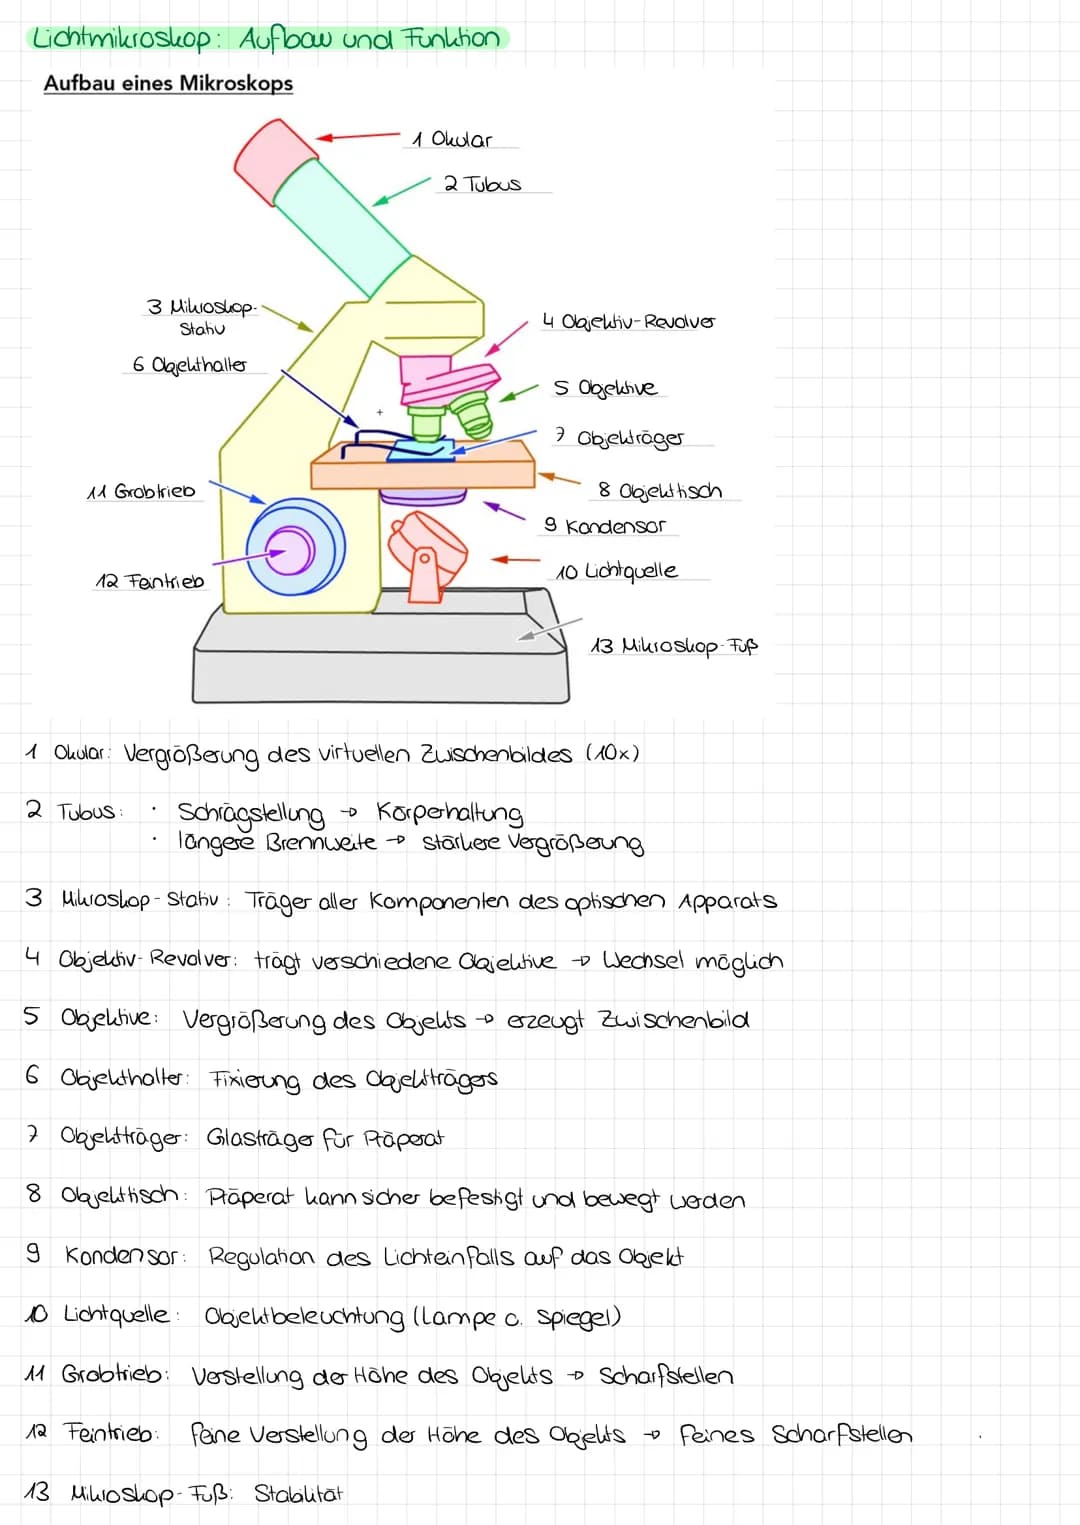 Lichtmikroskop: Aufbau und Funktion
Aufbau eines Mikroskops
1 Okular
2 Tubus
3 Mikroskop-
Stativ
4 Objektiv-Revolver
6 Objekthalter
5 Objektive
7 Objekträger
11 Grobtrieb
8 Objekttisch
9 Kondensor
10 Lichtquelle
12 Feintrieb
13 Mikroskop-Fuß
1 Okular: Vergrößerung des virtuellen Zwischenbildes (10x)
2 Tubus: · Schrägstellung → Körperhaltung
· längere Brennweite → stärkere Vergrößerung
3 Mikroskop-Stativ: Träger aller Komponenten des optischen Apparats
4 Objektiv-Revolver: trägt verschiedene Objektive → Wechsel möglich
5 Objektive: Vergrößerung des Objekts → erzeugt Zwischenbild
6 Objekthalter: Fixierung des Objektträgers
7 Objektträger: Glasträger für Präperat
8 Objekttisch: Präperat kann sicher befestigt und bewegt werden
9 Kondensor: Regulation des Lichteinfalls auf das Objekt
10 Lichtquelle: Objektbeleuchtung (Lampe o. Spiegel)
11 Grobtrieb: Verstellung der Höhe des Objekts → Scharfstellen
12 Feintrieb: feine Verstellung der Höhe des Objekts → feines Scharfstellen
13 Mikroskop-Fuß: Stabilität